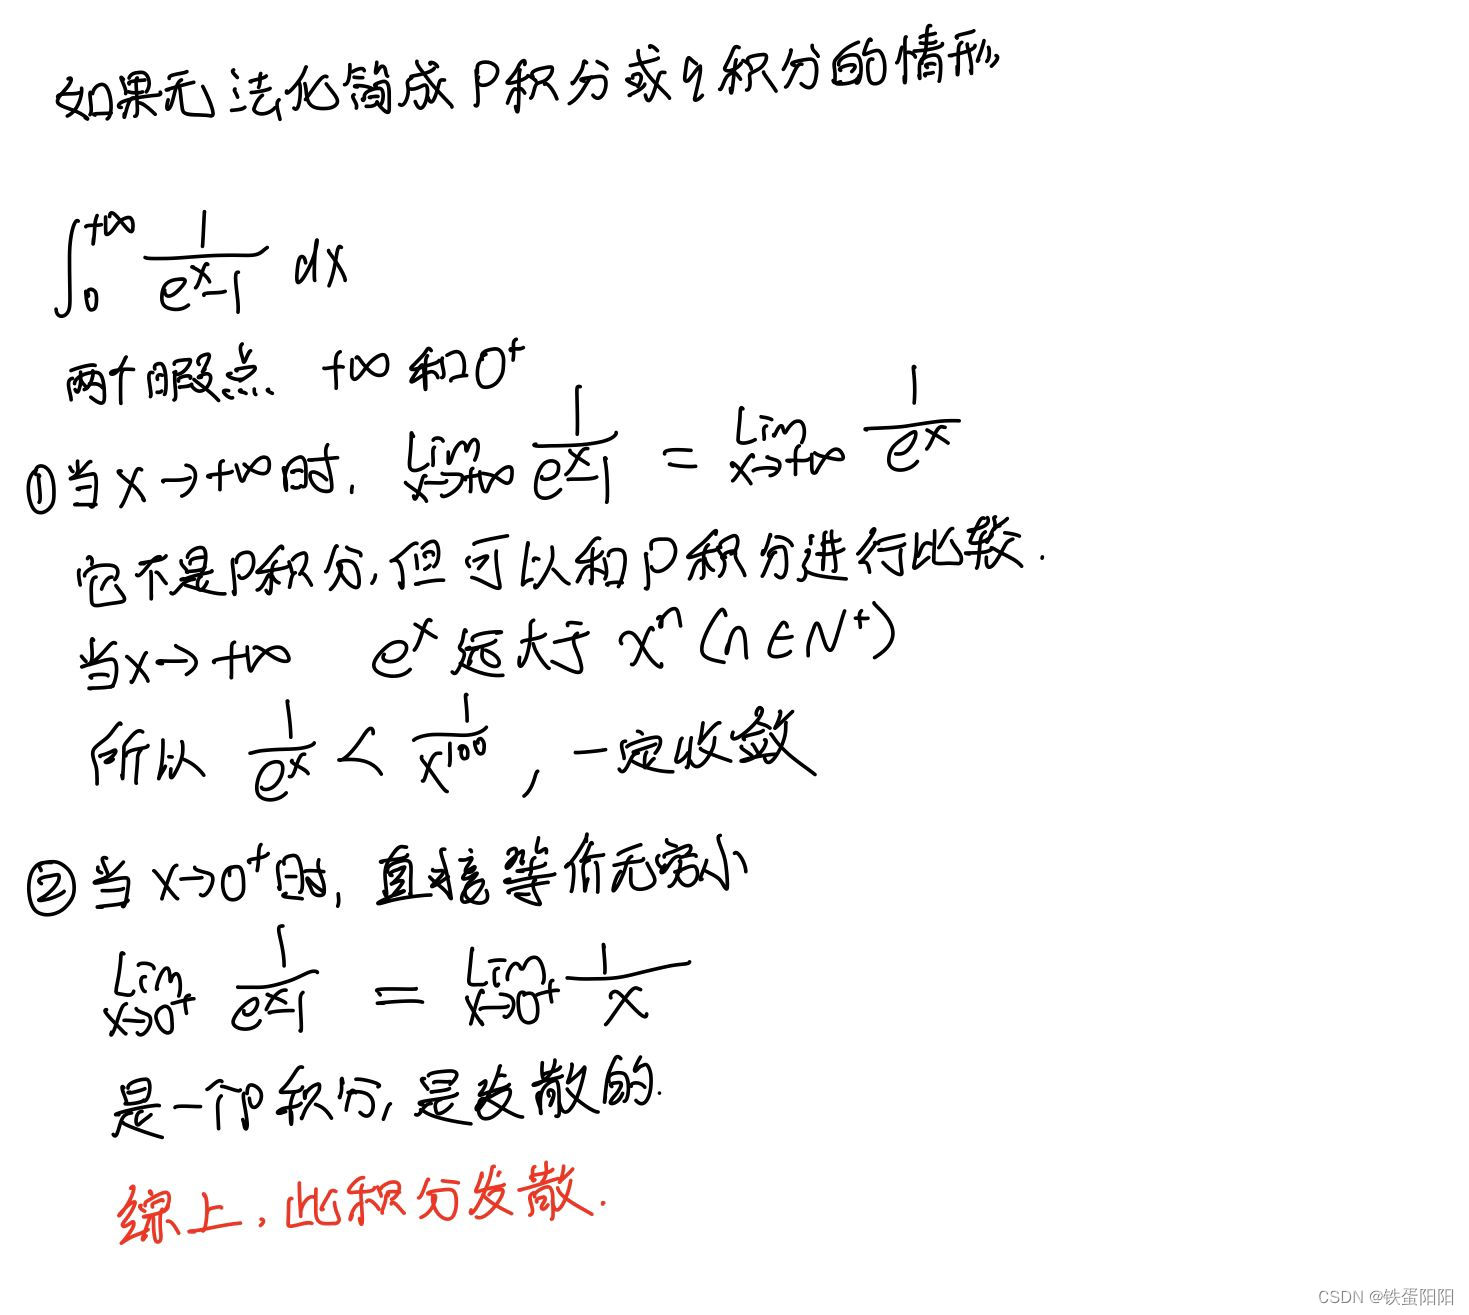 如果无法化简成P积分或q积分的情形
∫₀^{+∞} 1/(e^x-1) dx
两个瑕点 +∞和0⁺
①当x→+∞时, Lim_{x→+∞} 1/(e^x-1) = Lim_{x→+∞} 1/e^x
它不是P积分,但可以和P积分进行比较.
当x→+∞ e^x远大于x^n(n∈N⁺)
所以 1/e^x < 1/x^100 , 一定收敛
②当x→0⁺时, 直接等价无穷小
Lim_{x→0⁺} 1/(e^x-1) = Lim_{x→0⁺} 1/x
是一个p积分,是发散的.
综上,此积分发散.
CSDN @铁蛋阳阳